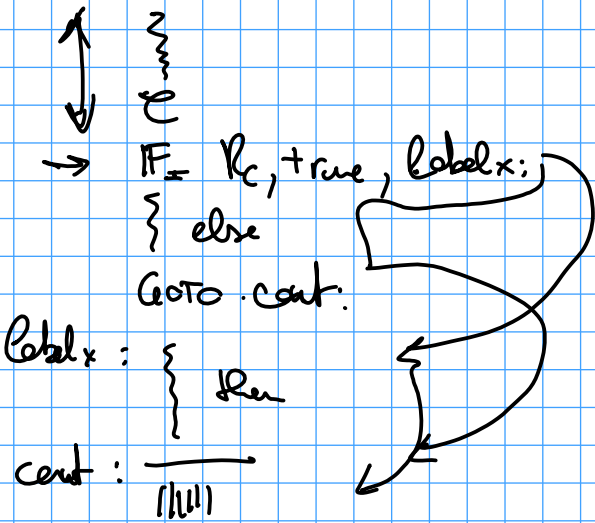 e
IF_ Rc, true, labelx;
else
GOTO cont.
labelx :
then
cont :